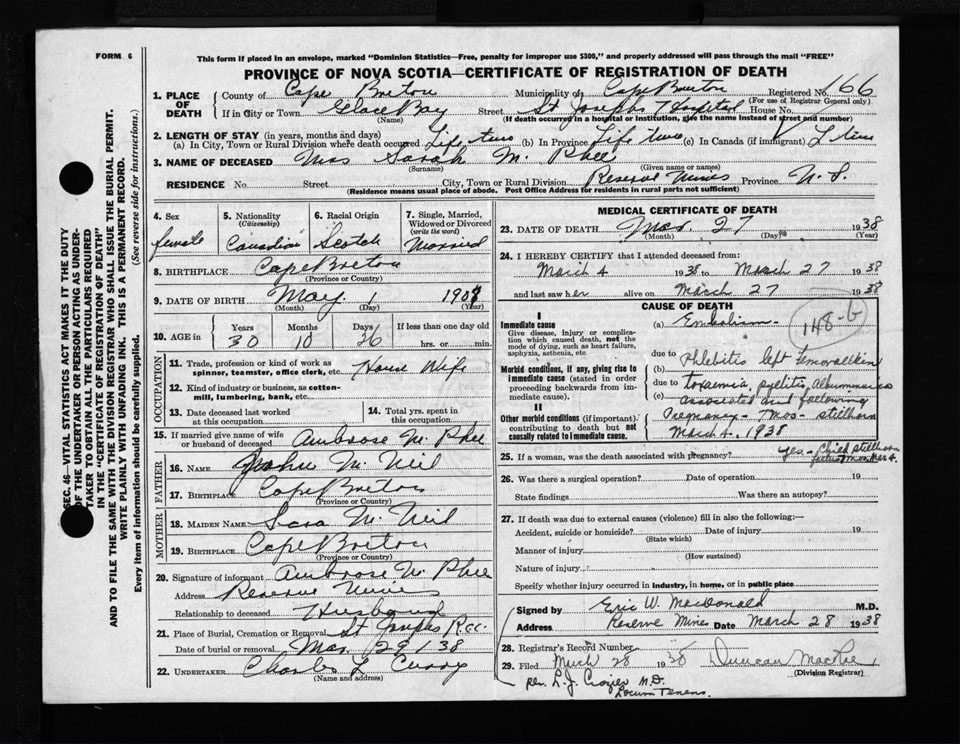 FORM 6
This form if placed in an envelope, marked "Dominion Statistics—Free, penalty for improper use $300," and properly addressed will pass through the mail "FREE"
PROVINCE OF NOVA SCOTIA—CERTIFICATE OF REGISTRATION OF DEATH
1. PLACE OF DEATH
County of Cape Breton Municipality of Cape Breton Registered No. 66
(For use of Registrar General only)
If in City or Town Glace Bay Street St Josephs Hospital House No.
(Name) (If death occurred in a hospital or institution, give the name instead of street and number)
2. LENGTH OF STAY (in years, months and days)
(a) In City, Town or Rural Division where death occurred Life time (b) In Province Life time (c) In Canada (if immigrant)
3. NAME OF DECEASED Mrs Sarah Mc Phee
(Surname) (Given name or names)
RESIDENCE No. Street City, Town or Rural Division Reserve Mines Province N. S.
(Residence means usual place of abode. Post Office Address for residents in rural parts not sufficient)
SEC. 46—VITAL STATISTICS ACT MAKES IT THE DUTY
OF THE UNDERTAKER OR PERSON ACTING AS UNDER-
TAKER TO OBTAIN ALL THE PARTICULARS REQUIRED
IN THE "CERTIFICATE OF REGISTRATION OF DEATH"
AND TO FILE THE SAME WITH THE DIVISION REGISTRAR WHO SHALL ISSUE THE BURIAL PERMIT.
WRITE PLAINLY WITH UNFADING INK. THIS IS A PERMANENT RECORD.
Every item of information should be carefully supplied. (See reverse side for instructions.)
4. Sex 5. Nationality 6. Racial Origin 7. Single, Married, Widowed or Divorced
(Citizenship) (write the word)
female Canadian Scotch Married
8. BIRTHPLACE Cape Breton
(Province or Country)
9. DATE OF BIRTH May 1 190
(Month) (Day) (Year)
10. AGE in Years Months Days If less than one day old
30 10 26 hrs. or min.
OCCUPATION
11. Trade, profession or kind of work as spinner, teamster, office clerk, etc. House Wife
12. Kind of industry or business, as cotton-mill, lumbering, bank, etc.
13. Date deceased last worked at this occupation
14. Total yrs. spent in this occupation
15. If married give name of wife or husband of deceased Ambrose Mc Phee
FATHER
16. NAME John Mc Neil
17. BIRTHPLACE Cape Breton
(Province or Country)
MOTHER
18. MAIDEN NAME Sara Mc Neil
19. BIRTHPLACE Cape Breton
(Province or Country)
20. Signature of informant Ambrose Mc Phee
Address Reserve Mines
Relationship to deceased Husband
21. Place of Burial, Cremation or Removal St Josephs
Date of burial or removal Mar 29 / 38
22. UNDERTAKER Charles L Curry
MEDICAL CERTIFICATE OF DEATH
23. DATE OF DEATH Mar. 27 1938
(Month) (Day) (Year)
24. I HEREBY CERTIFY that I attended deceased from:
March 4 1938 to March 27 1938
and last saw her alive on March 27 1938
CAUSE OF DEATH
I
Immediate cause (a) Embolism 148-G
Give disease, injury or complication which caused death, not the mode of dying, such as heart failure, asphyxia, asthenia, etc.
due to (b) Phlebitis left femoral vein
Morbid conditions, if any, giving rise to immediate cause (stated in order proceeding backwards from immediate cause).
due to (c) Toxaemia, pyelitis, albuminuria
associated and following
II
Other morbid conditions (if important) contributing to death but not causally related to immediate cause.
Pregnancy - 7 mos - stillborn
March 4, 1938
25. If a woman, was the death associated with pregnancy? yes - Child stillborn
26. Was there a surgical operation? Date of operation 19
State findings Was there an autopsy?
27. If death was due to external causes (violence) fill in also the following:—
Accident, suicide or homicide? Date of injury 19
(State which)
Manner of injury
(How sustained)
Nature of injury
Specify whether injury occurred in industry, in home, or in public place
Signed by Eric W. MacDonald M.D.
Address Reserve Mines Date March 28 1938
28. Registrar's Record Number
29. Filed March 28 1938 Duncan MacPhee
(Division Registrar)
per. L. J. Crozier M.D.
Locum Tenens.